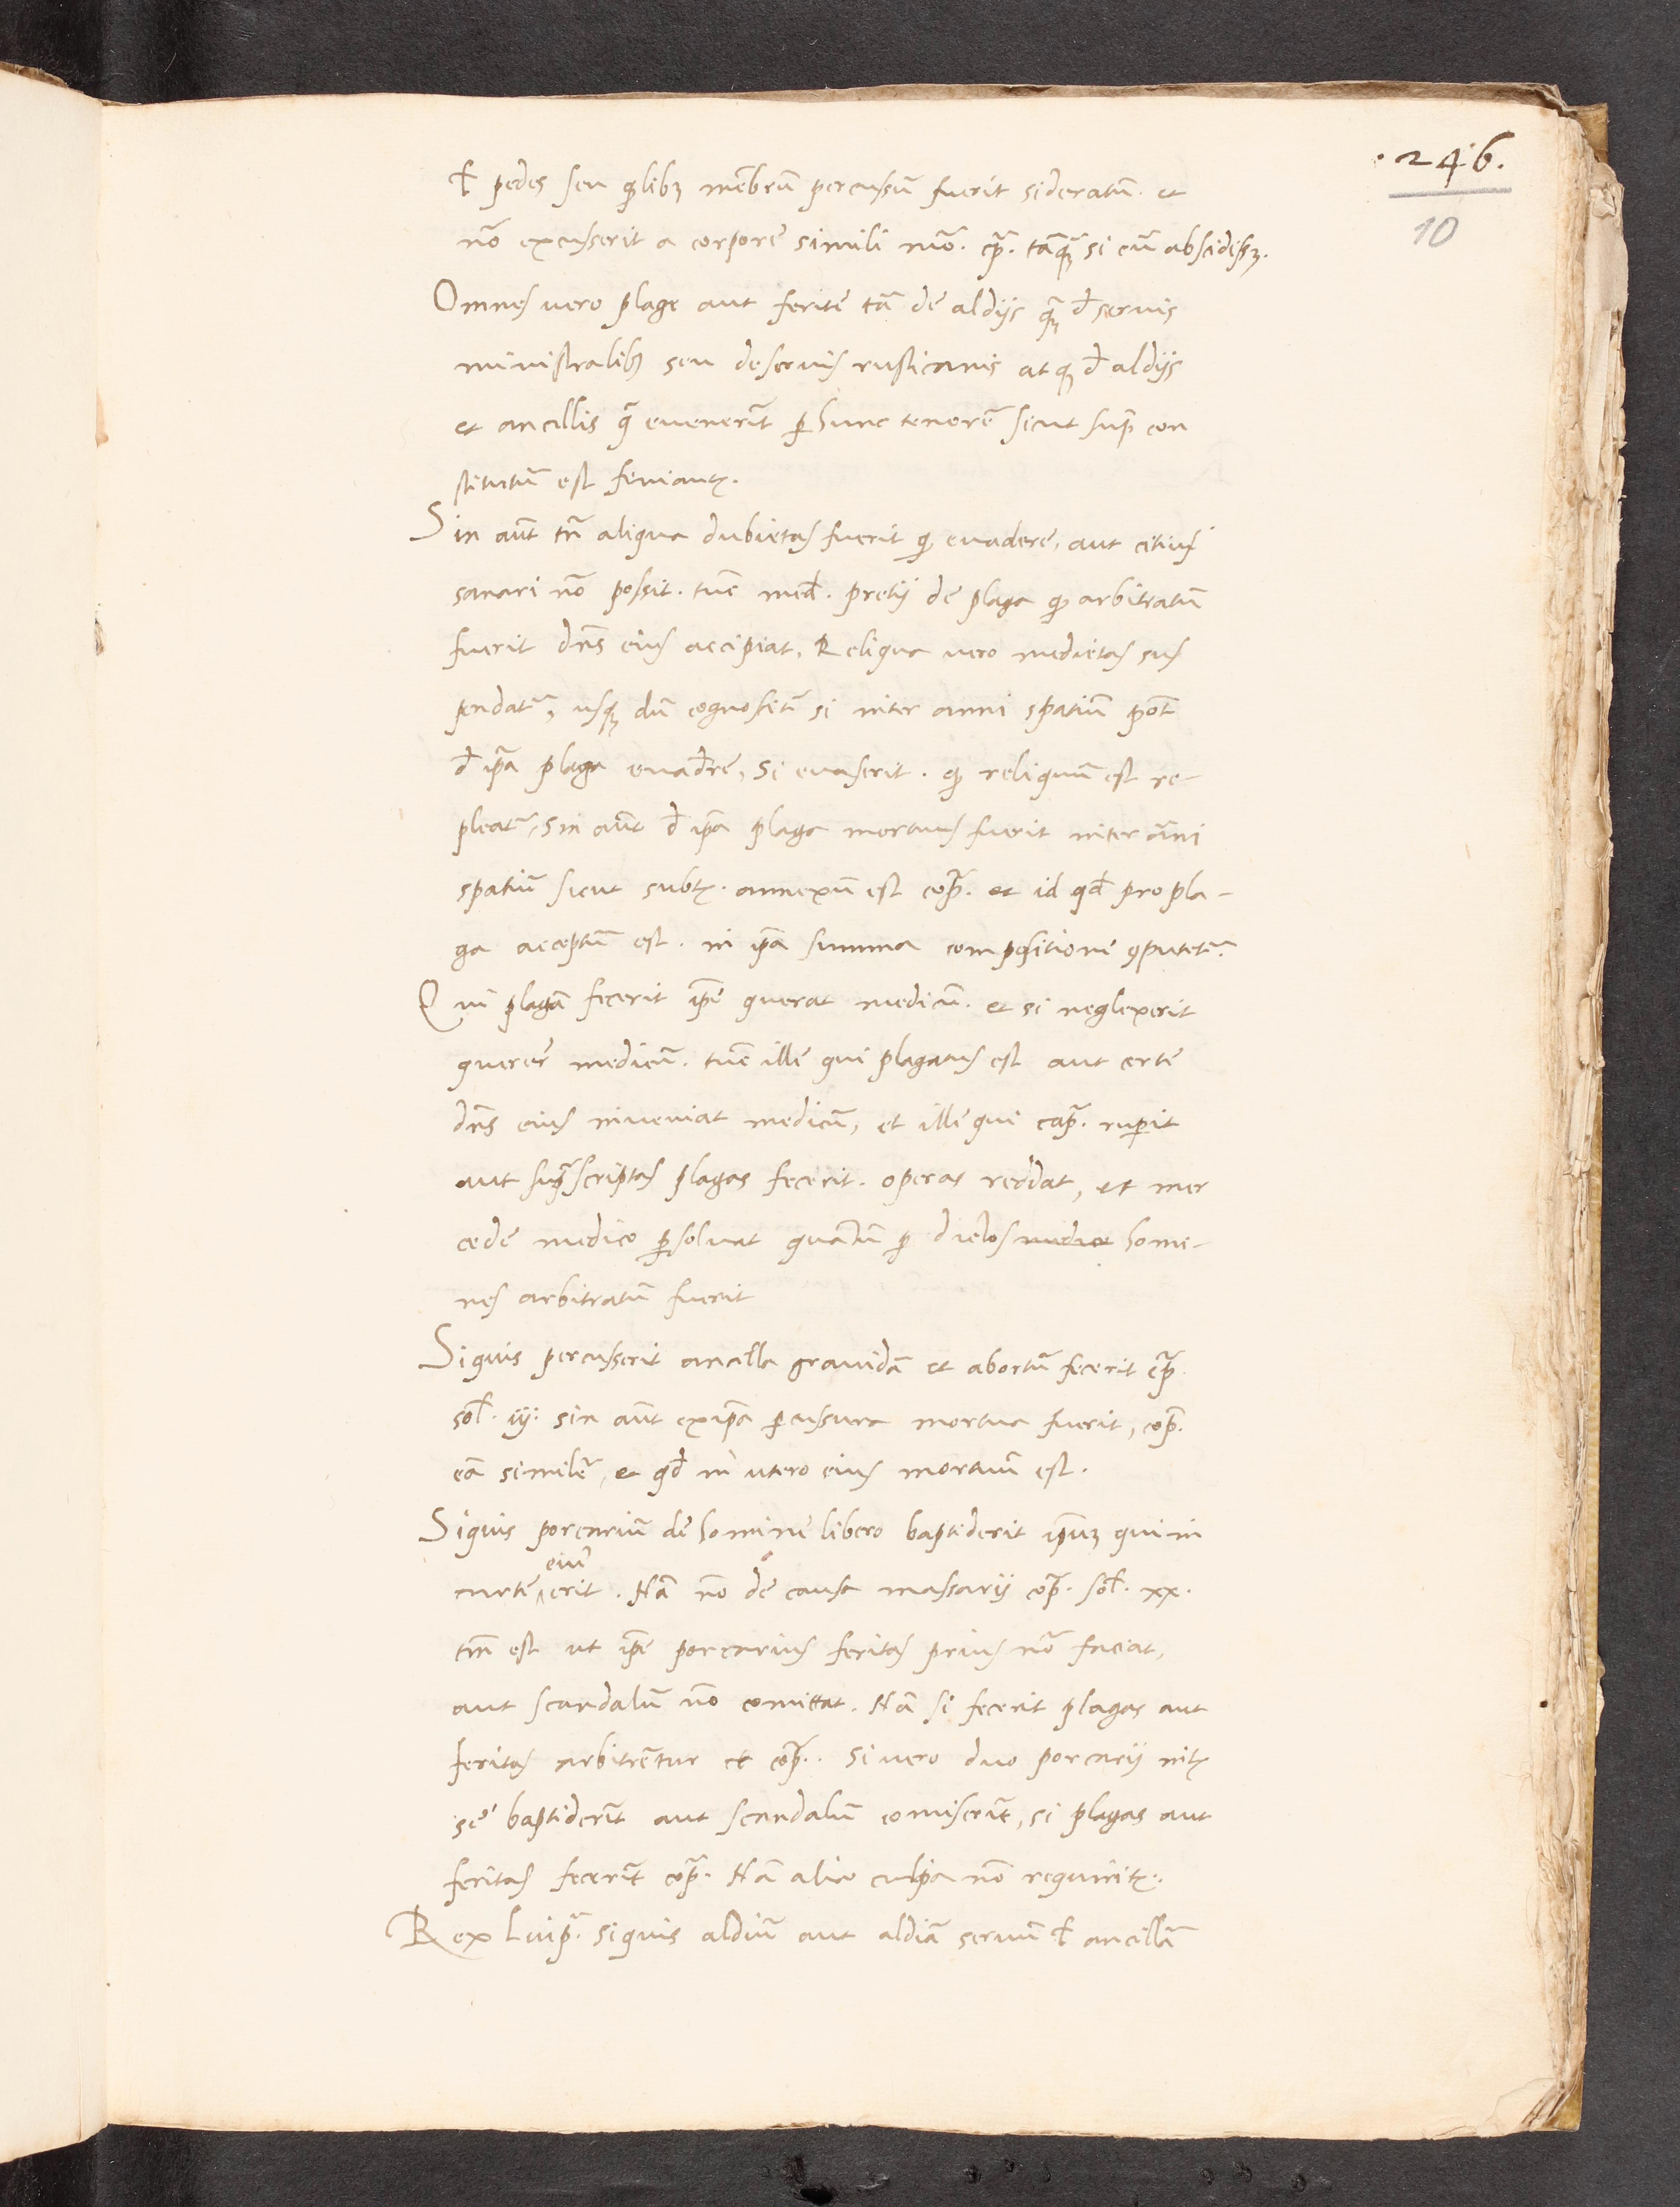 .246.
10
ł pedes seu qlibꝫ mẽbrũ percussũ fuerit sideratũ. et
nõ excusserit a corpore simili mõ. cp̃. tãqꝫ̃ si eũ abscidissꝫ.
Omnes vero plage aut ferite tã de aldijs qꝫ̃ đ servis
ministralibꝫ seu de servis rusticanis atqꝫ đ aldijs
et ancillis q̃ evenerĩt ꝑ hunc tenorẽ sicut sup̃ con
stitutũ est finiantꝛ.
Sin aũt tñ aliqua dubietas fuerit qꝫ evadere, aut citius
sanari nõ possit. tũc međ. pretij de plaga qꝫ arbitratũ
fuerit dñs eius accipiat. Reliqua vero medietas sus
pendatꝛ, usqꝫ dũ cognoscitꝛ si inter anni spatiũ põt
đ ip̃a plaga evadre, Si evaserit. qꝫ reliquũ est re-
pleatꝛ, sin aũt đ ip̃a plaga mortuus fuerit inter ãni
spatiũ sicut subtꝛ. annexũ est cop̃. et id qđ pro pla-
ga acceptũ est. in ip̃a summa compositione ꝯputetꝛ.
Qui plagã fecerit ip̃e querat medicũ. et si neglexerit
querere medicũ. tũc ille qui plagatus est aut certe
dñs eius inveniat medicũ, et ille qui cap̃. ruꝑit
aut sup̃scriptas plagas fecerit. operas reddat, et mer
cede medico ꝑsolvat quantũ ꝑ dictos medico homi-
nes arbitratũ fuerit
Siquis percusserit ancilla gravidã et abortũ fecerit cp̃
sol. iij. sin aũt ex ip̃a ꝑcussura mortua fuerit, cop̃.
eã similꝛ, et qđ in utero eius mortuũ est.
Siquis porcariũ de homine libero baptiderit ip̃uꝫ qui in
curte eius erit. Nã nõ de causa massarij cop̃. sol. xx.
tm̃ est ut ip̃e porcarius feritas prius nõ faciat,
aut scandalũ nõ comittat. Nã si fecerit plagas aut
feritas arbitrẽtur et cop̃.. Si vero duo porcarij intꝛ
se baptiderĩt aut scandalũ comiserĩt, si plagas aut
feritas fecerĩt cop̃. Nã alia culpa nõ requiritꝛ.
Rex Luip̃. Siquis aldiũ aut aldiã servũ ł ancillã